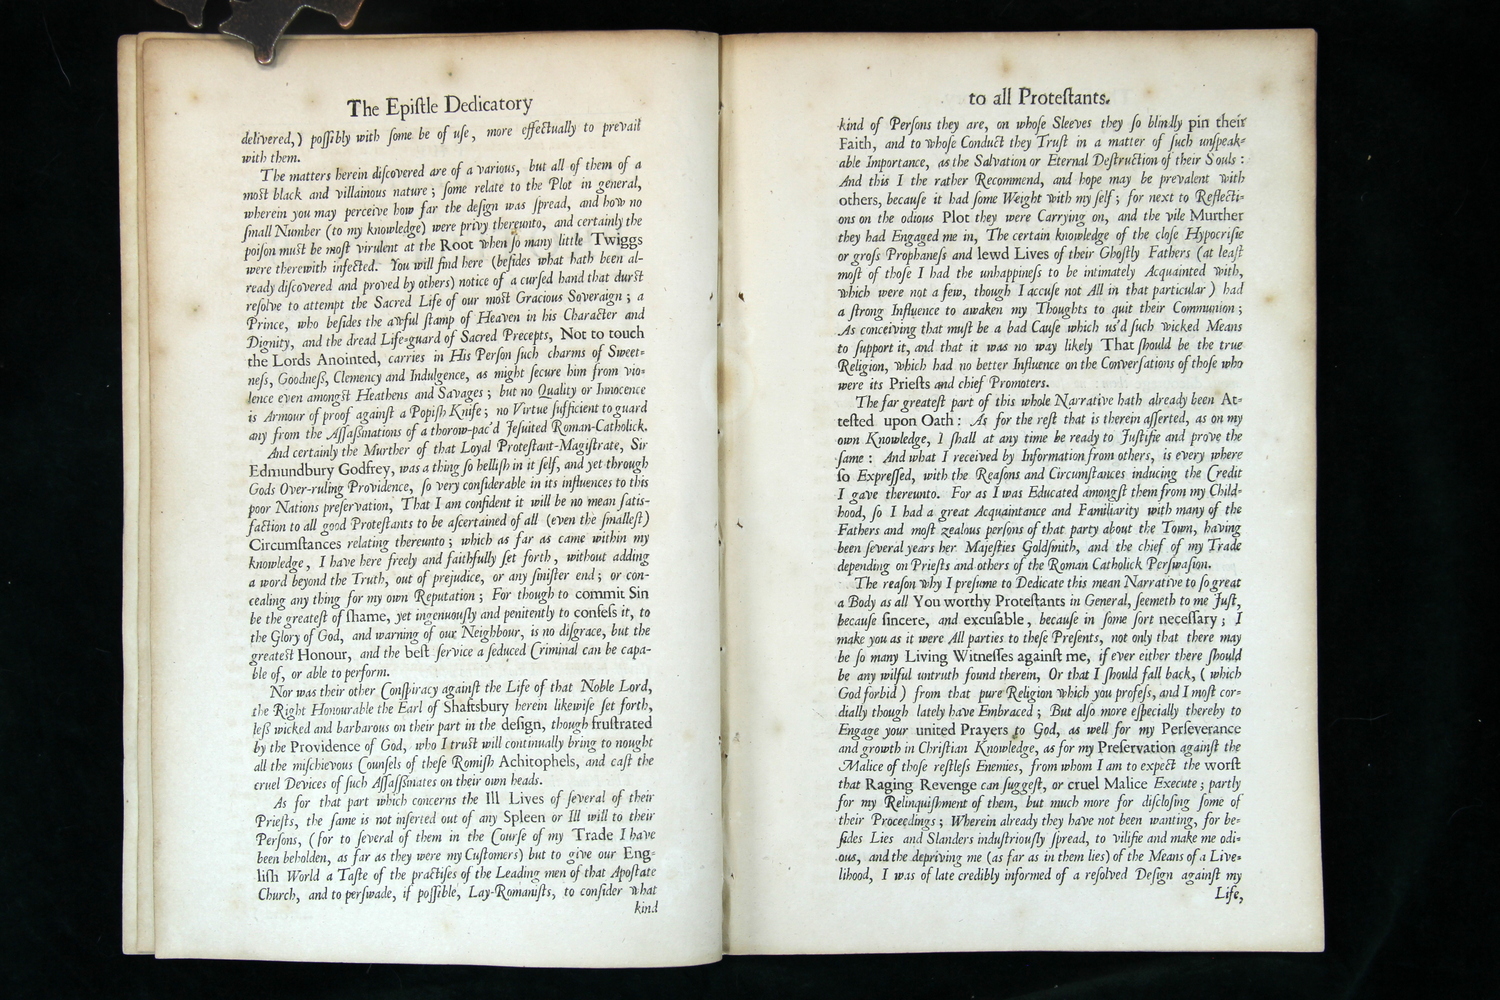 The Epiſtle Dedicatory
delivered,) poſſibly with ſome be of uſe, more effectually to prevail
with them.
The matters herein diſcovered are of a various, but all of them of a
moſt black and villainous nature; ſome relate to the Plot in general,
wherein you may perceive how far the deſign was ſpread, and how no
ſmall Number (to my knowledge) were privy thereunto, and certainly the
poiſon muſt be moſt virulent at the Root when ſo many little Twiggs
were therewith infected. You will find here (beſides what hath been al-
ready diſcovered and proved by others) notice of a curſed hand that durſt
reſolve to attempt the Sacred Life of our moſt Gracious Soveraign; a
Prince, who beſides the awful ſtamp of Heaven in his Character and
Dignity, and the dread Life-guard of Sacred Precepts, Not to touch
the Lords Anointed, carries in His Perſon ſuch charms of Sweet-
neſs, Goodneſs, Clemency and Indulgence, as might ſecure him from vio-
lence even amongſt Heathens and Savages; but no Quality or Innocence
is Armour of proof againſt a Popiſh Knife; no Virtue ſufficient to guard
any from the Aſſaſſinations of a thorow-pac'd Jeſuited Roman-Catholick.
And certainly the Murther of that Loyal Proteſtant-Magiſtrate, Sir
Edmundbury Godfrey, was a thing ſo helliſh in it ſelf, and yet through
Gods Over-ruling Providence, ſo very conſiderable in its influences to this
poor Nations preſervation, That I am confident it will be no mean ſatis-
faction to all good Proteſtants to be aſcertained of all (even the ſmalleſt)
Circumſtances relating thereunto; which as far as came within my
knowledge, I have here freely and faithfully ſet forth, without adding
a word beyond the Truth, out of prejudice, or any ſiniſter end; or con-
cealing any thing for my own Reputation; For though to commit Sin
be the greateſt of ſhame, yet ingenuouſly and penitently to confeſs it, to
the Glory of God, and warning of our Neighbour, is no diſgrace, but the
greateſt Honour, and the beſt ſervice a ſeduced Criminal can be capa-
ble of, or able to perform.
Nor was their other Conſpiracy againſt the Life of that Noble Lord,
the Right Honourable the Earl of Shaftsbury herein likewiſe ſet forth,
leſs wicked and barbarous on their part in the deſign, though fruſtrated
by the Providence of God, who I truſt will continually bring to nought
all the miſchievous Counſels of theſe Romiſh Achitophels, and caſt the
cruel Devices of ſuch Aſſaſſinates on their own heads.
As for that part which concerns the Ill Lives of ſeveral of their
Prieſts, the ſame is not inſerted out of any Spleen or Ill will to their
Perſons, (for to ſeveral of them in the Courſe of my Trade I have
been beholden, as far as they were my Cuſtomers) but to give our Eng-
liſh World a Taſte of the practiſes of the Leading men of that Apoſtate
Church, and to perſwade, if poſſible, Lay-Romaniſts, to conſider what
kind
to all Proteſtants.
kind of Perſons they are, on whoſe Sleeves they ſo blindly pin their
Faith, and to whoſe Conduct they Truſt in a matter of ſuch unſpeak-
able Importance, as the Salvation or Eternal Deſtruction of their Souls:
And this I the rather Recommend, and hope may be prevalent with
others, becauſe it had ſome Weight with my ſelf; for next to Reflecti-
ons on the odious Plot they were Carrying on, and the vile Murther
they had Engaged me in, The certain knowledge of the cloſe Hypocriſie
or groſs Prophaneſs and lewd Lives of their Ghoſtly Fathers (at leaſt
moſt of thoſe I had the unhappineſs to be intimately Acquainted with,
which were not a few, though I accuſe not All in that particular) had
a ſtrong Influence to awaken my Thoughts to quit their Communion;
As conceiving that muſt be a bad Cauſe which us'd ſuch wicked Means
to ſupport it, and that it was no way likely That ſhould be the true
Religion, which had no better Influence on the Converſations of thoſe who
were its Prieſts and chief Promoters.
The far greateſt part of this whole Narrative hath already been At-
teſted upon Oath: As for the reſt that is therein aſſerted, as on my
own Knowledge, I ſhall at any time be ready to Juſtifie and prove the
ſame: And what I received by Information from others, is every where
ſo Expreſſed, with the Reaſons and Circumſtances inducing the Credit
I gave thereunto. For as I was Educated amongſt them from my Child-
hood, ſo I had a great Acquaintance and Familiarity with many of the
Fathers and moſt zealous perſons of that party about the Town, having
been ſeveral years her Majeſties Goldſmith, and the chief of my Trade
depending on Prieſts and others of the Roman Catholick Perſwaſion.
The reaſon why I preſume to Dedicate this mean Narrative to ſo great
a Body as all You worthy Proteſtants in General, ſeemeth to me Juſt,
becauſe ſincere, and excuſable, becauſe in ſome ſort neceſſary; I
make you as it were All parties to theſe Preſents, not only that there may
be ſo many Living Witneſſes againſt me, if ever either there ſhould
be any wilful untruth found therein, Or that I ſhould fall back, (which
God forbid) from that pure Religion which you profeſs, and I moſt cor-
dially though lately have Embraced; But alſo more eſpecially thereby to
Engage your united Prayers to God, as well for my Perſeverance
and growth in Chriſtian Knowledge, as for my Preſervation againſt the
Malice of thoſe reſtleſs Enemies, from whom I am to expect the worſt
that Raging Revenge can ſuggeſt, or cruel Malice Execute; partly
for my Relinquiſhment of them, but much more for diſcloſing ſome of
their Proceedings; Wherein already they have not been wanting, for be-
ſides Lies and Slanders induſtriouſly ſpread, to vilifie and make me odi-
ous, and the depriving me (as far as in them lies) of the Means of a Live-
lihood, I was of late credibly informed of a reſolved Deſign againſt my
Life,